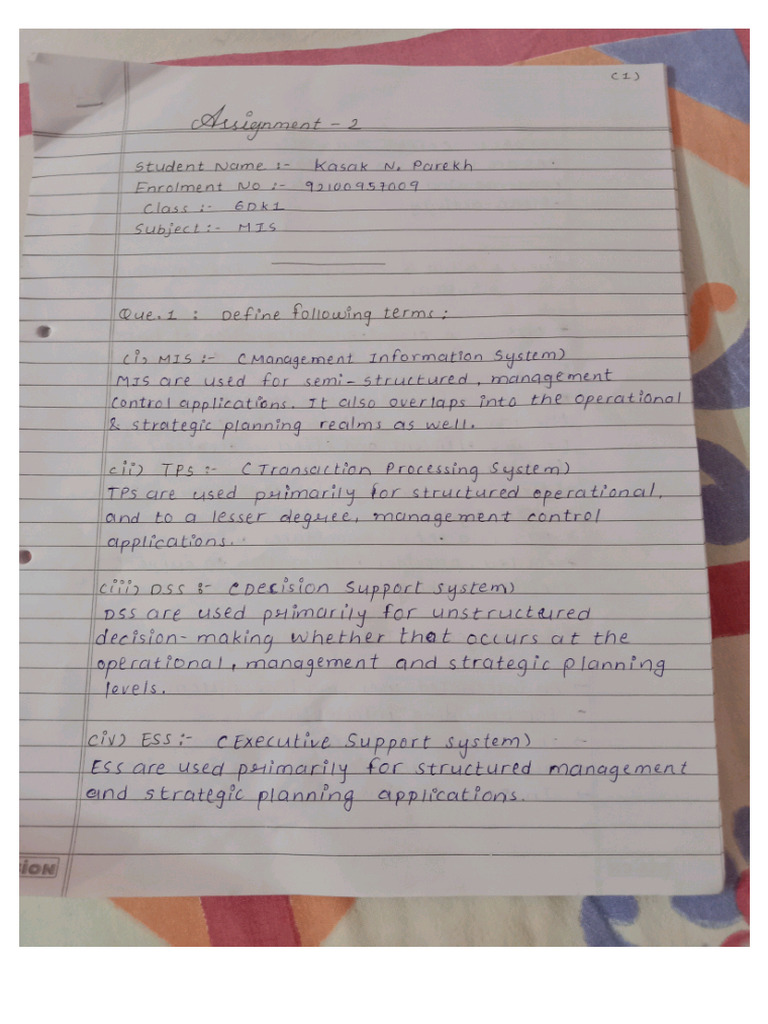 (1)
Assignment - 2
Student Name :- Kasak N. Parekh
Enrolment No :- 92100957009
Class :- 6DK1
Subject :- MIS
Que. 1 : Define following terms :
(i) MIS :- (Management Information System)
MIS are used for semi-structured, management
control applications. It also overlaps into the operational
& strategic planning realms as well.
(ii) TPS :- (Transaction Processing System)
TPS are used primarily for structured operational,
and to a lesser degree, management control
applications.
(iii) DSS :- (Decision Support system)
DSS are used primarily for unstructured
decision-making whether that occurs at the
operational, management and strategic planning
levels.
(iv) ESS :- (Executive Support system)
ESS are used primarily for structured management
and strategic planning applications.